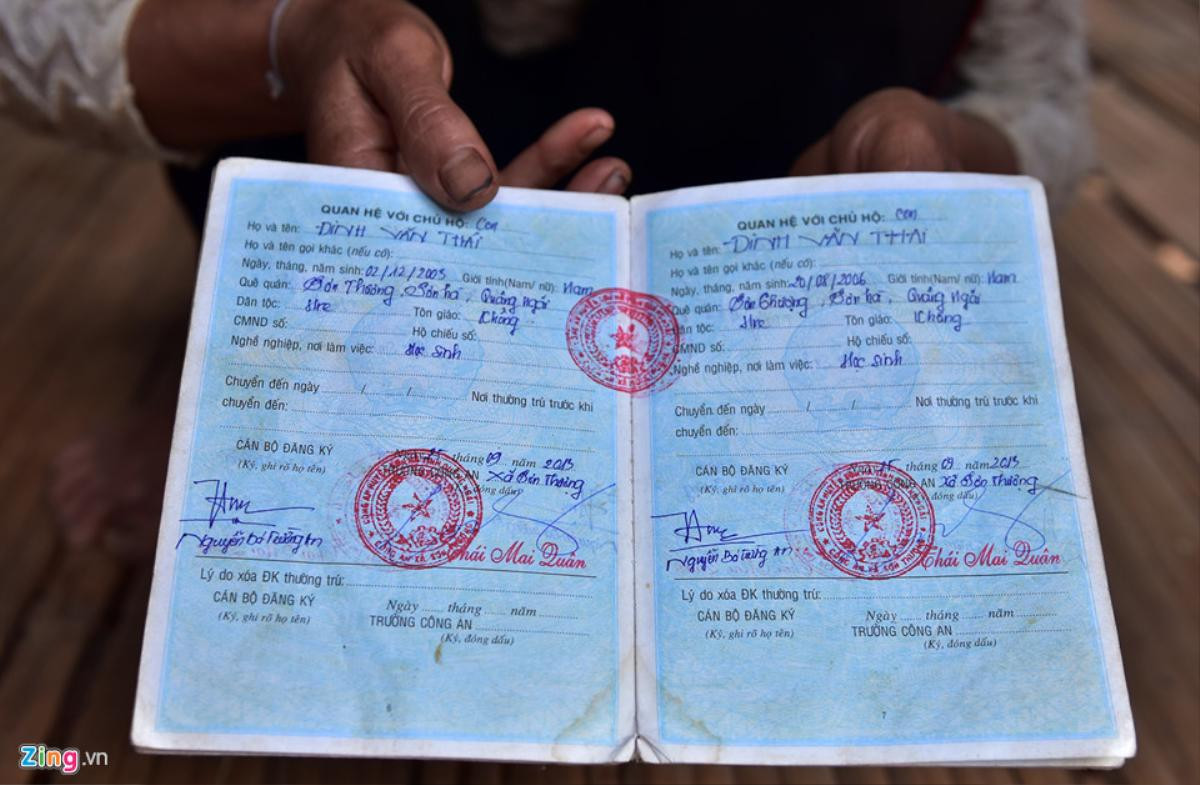 QUAN HỆ VỚI CHỦ HỘ: Con
Họ và tên: ĐINH VĂN THÁI
Họ và tên gọi khác (nếu có):
Ngày, tháng, năm sinh: 02/12/2005 Giới tính(Nam/ nữ): Nam
Quê quán: Sơn Thượng, Sơn hà, Quảng Ngãi
Dân tộc: Hre Tôn giáo: Không
CMND số: Hộ chiếu số:
Nghề nghiệp, nơi làm việc: Học sinh
Chuyển đến ngày / / Nơi thường trú trước khi
chuyển đến:
CÁN BỘ ĐĂNG KÝ
(Ký, ghi rõ họ tên)
15 tháng 09 năm 2013
TRƯỞNG CÔNG AN Xã Sơn Thượng
đóng dấu)
Nguyễn Bá Trường An
Thái Mai Quân
Lý do xóa ĐK thường trú:
CÁN BỘ ĐĂNG KÝ
(Ký, ghi rõ họ tên)
Ngày ...... tháng ...... năm
TRƯỞNG CÔNG AN
(Ký, đóng dấu)
6
QUAN HỆ VỚI CHỦ HỘ: Con
Họ và tên: ĐINH VĂN THAI
Họ và tên gọi khác (nếu có):
Ngày, tháng, năm sinh: 20/08/2006 Giới tính(Nam/ nữ): Nam
Quê quán: Sơn Thượng, Sơn hà, Quảng Ngãi
Dân tộc: Hre Tôn giáo: Không
CMND số: Hộ chiếu số:
Nghề nghiệp, nơi làm việc: Học sinh
Chuyển đến ngày / / Nơi thường trú trước khi
chuyển đến:
CÁN BỘ ĐĂNG KÝ
(Ký, ghi rõ họ tên)
15 tháng 09 năm 2013
TRƯỞNG CÔNG AN Xã Sơn Thượng
đóng dấu)
Nguyễn Bá Trường An
Thái Mai Quân
Lý do xóa ĐK thường trú:
CÁN BỘ ĐĂNG KÝ
(Ký, ghi rõ họ tên)
Ngày ...... tháng ...... năm
TRƯỞNG CÔNG AN
(Ký, đóng dấu)
7
Zing.vn